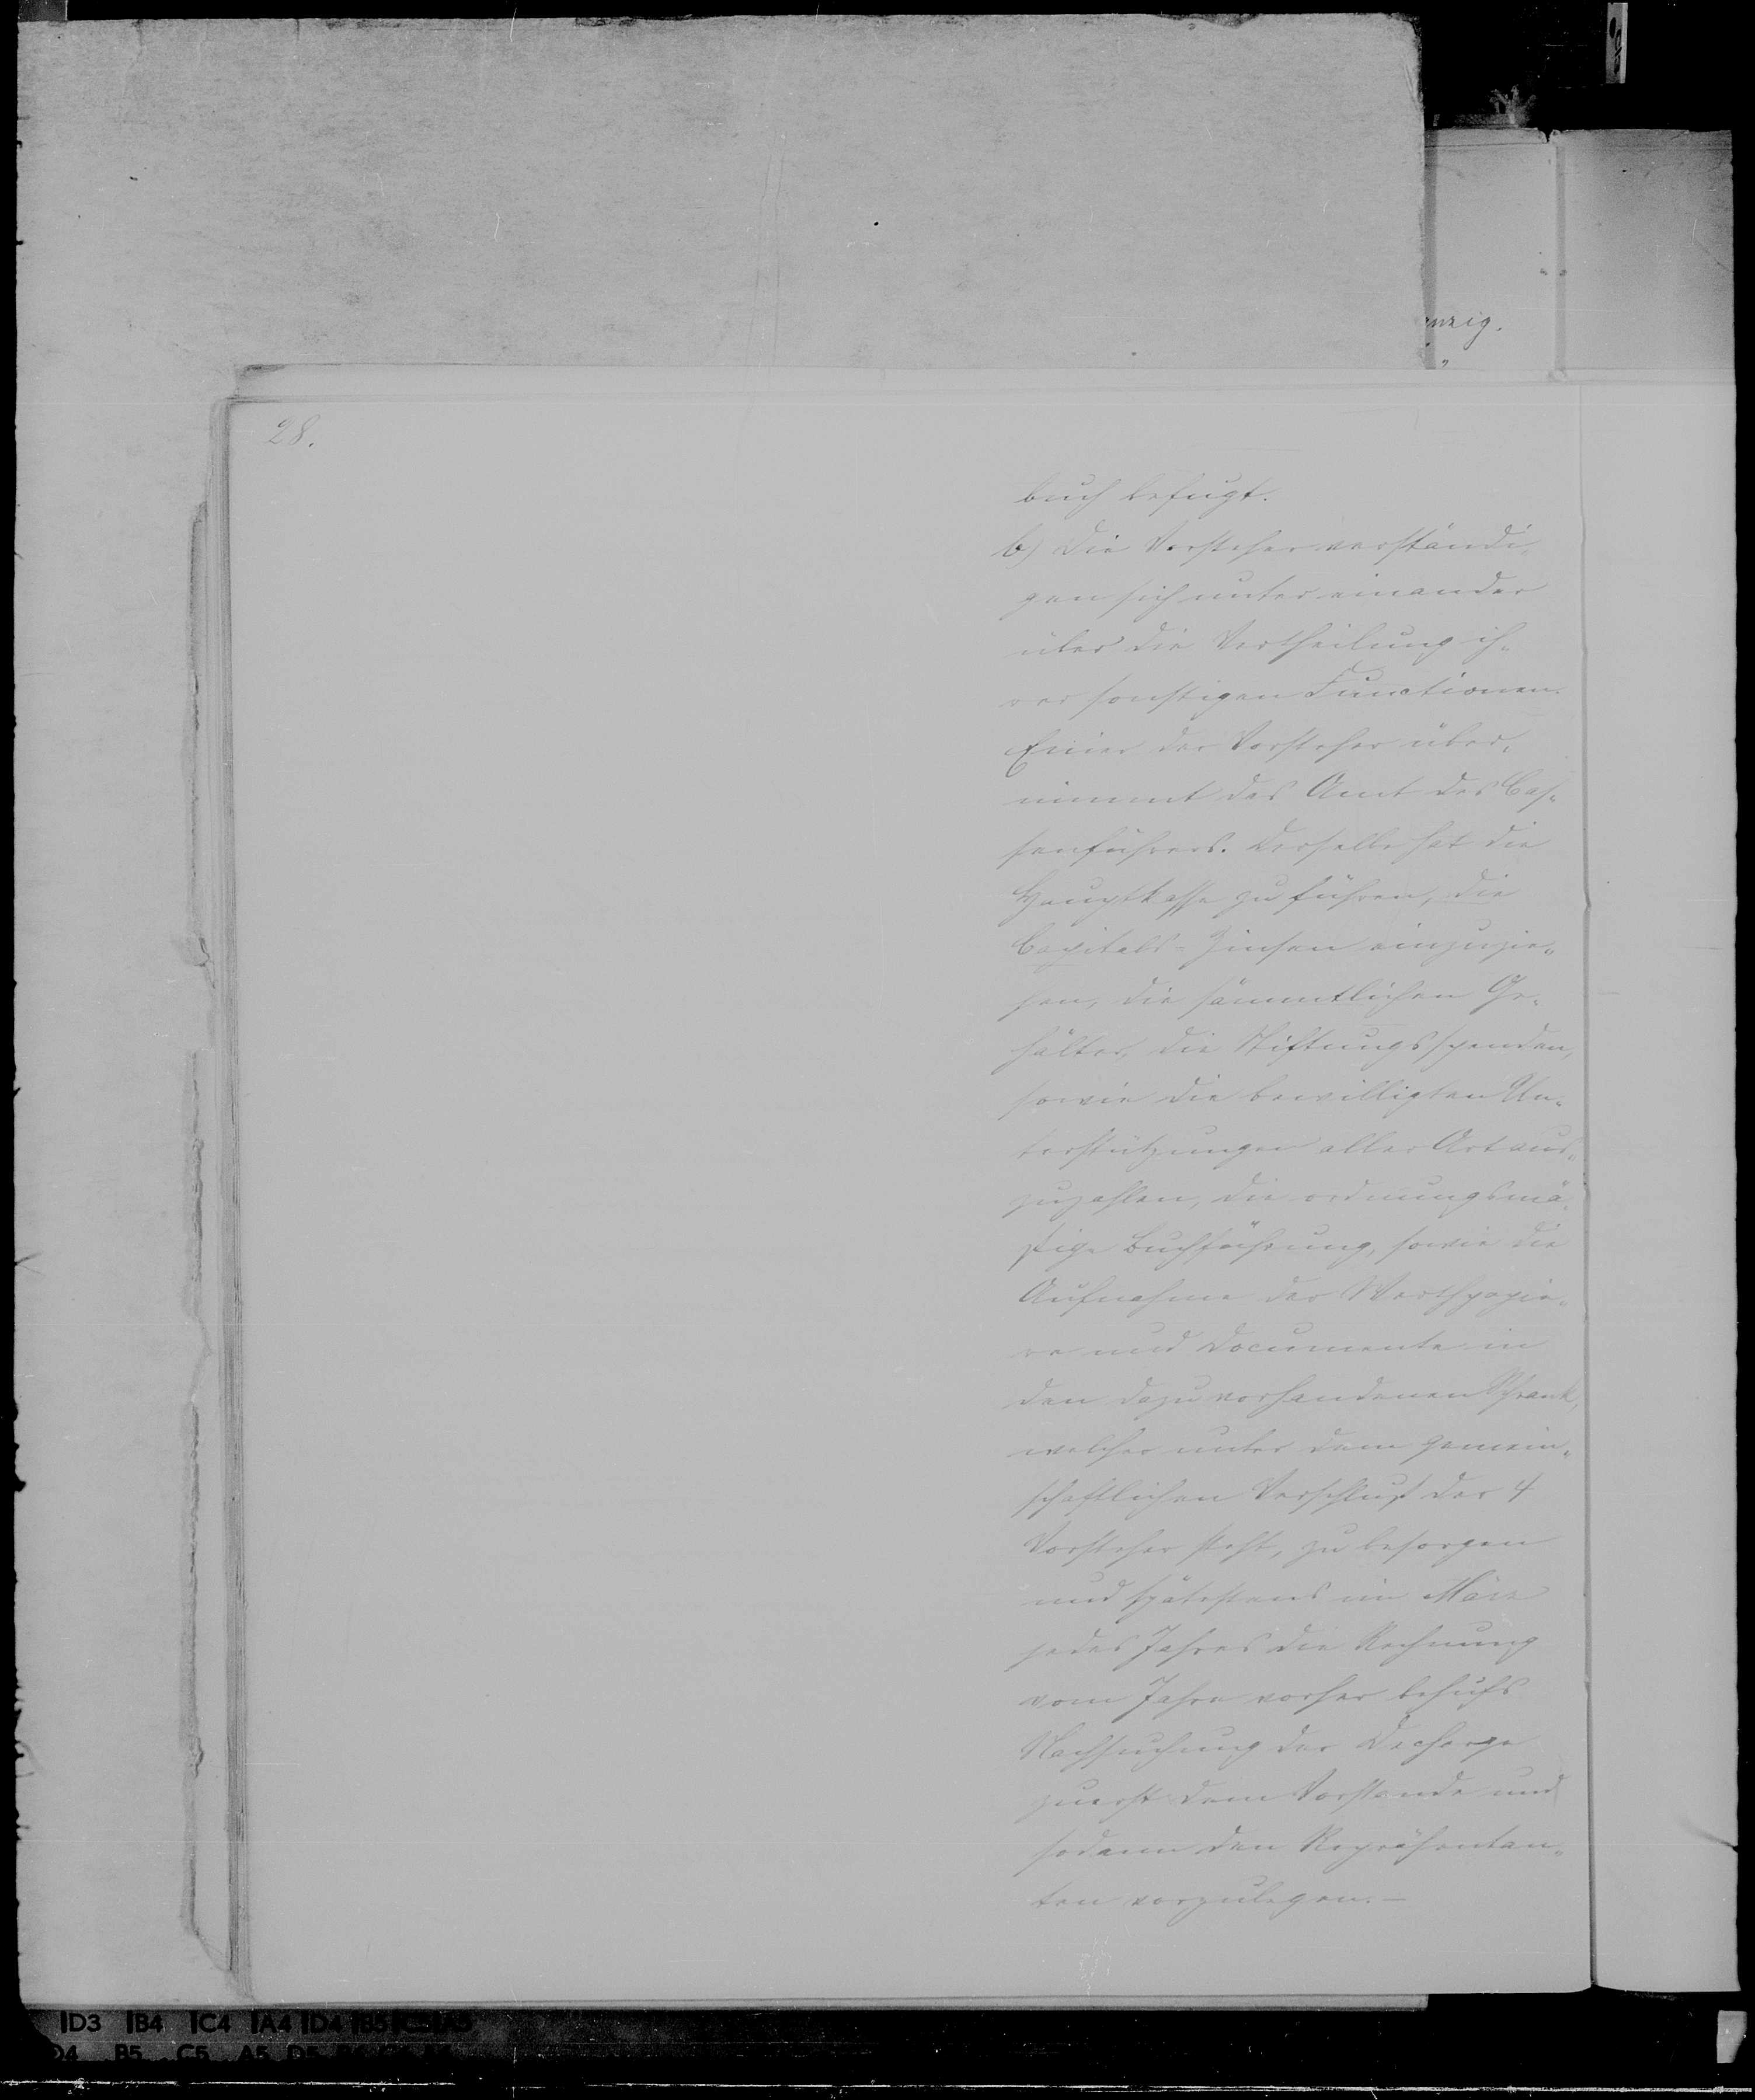 anzig.
28.
buch befugt.
b) Die Vorsteher verständi„
gen sich unter einander
über die Vertheilung ih„
rer sonstigen Functionen.
Einer der Vorsteher über„
nimmt das Amt des Cas„
senführers. Derselbe hat die
Hauptkasse zu führen, die
Capitals=Zinsen einzuzie„
hen, die sämmtlichen Ge„
hälter, die Stiftungsspenden,
sowie die bewilligten Un„
terstützungen aller Art aus„
zuzahlen, die ordnungsmä„
ßige Buchführung, sowie die
Aufnahme der Werthpapie„
re und Documente in
den dazu vorhandenen Schrank,
welcher unter dem gemein„
schaftlichen Verschluß der 4
Vorsteher steht, zu besorgen
und spätestens im März
jedes Jahres die Rechnung
vom Jahre vorher behufs
Nachsuchung der Decharge
zuerst dem Vorstande und
sodann den Repräsentan„
ten vorzulegen. —
D3 B4 C4 A4 D4 B5 A5
D4 B5 C5 A5 D5